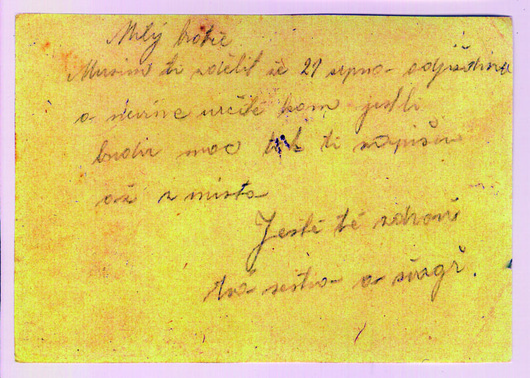 Milý bratře
Musím ti sdělit že 29 srpna odjíždíme
a nevíme určitě kam jestli
budu moc tak ti napíšu
až z místa
Ještě tě zdraví
tvá sestra a švagr.